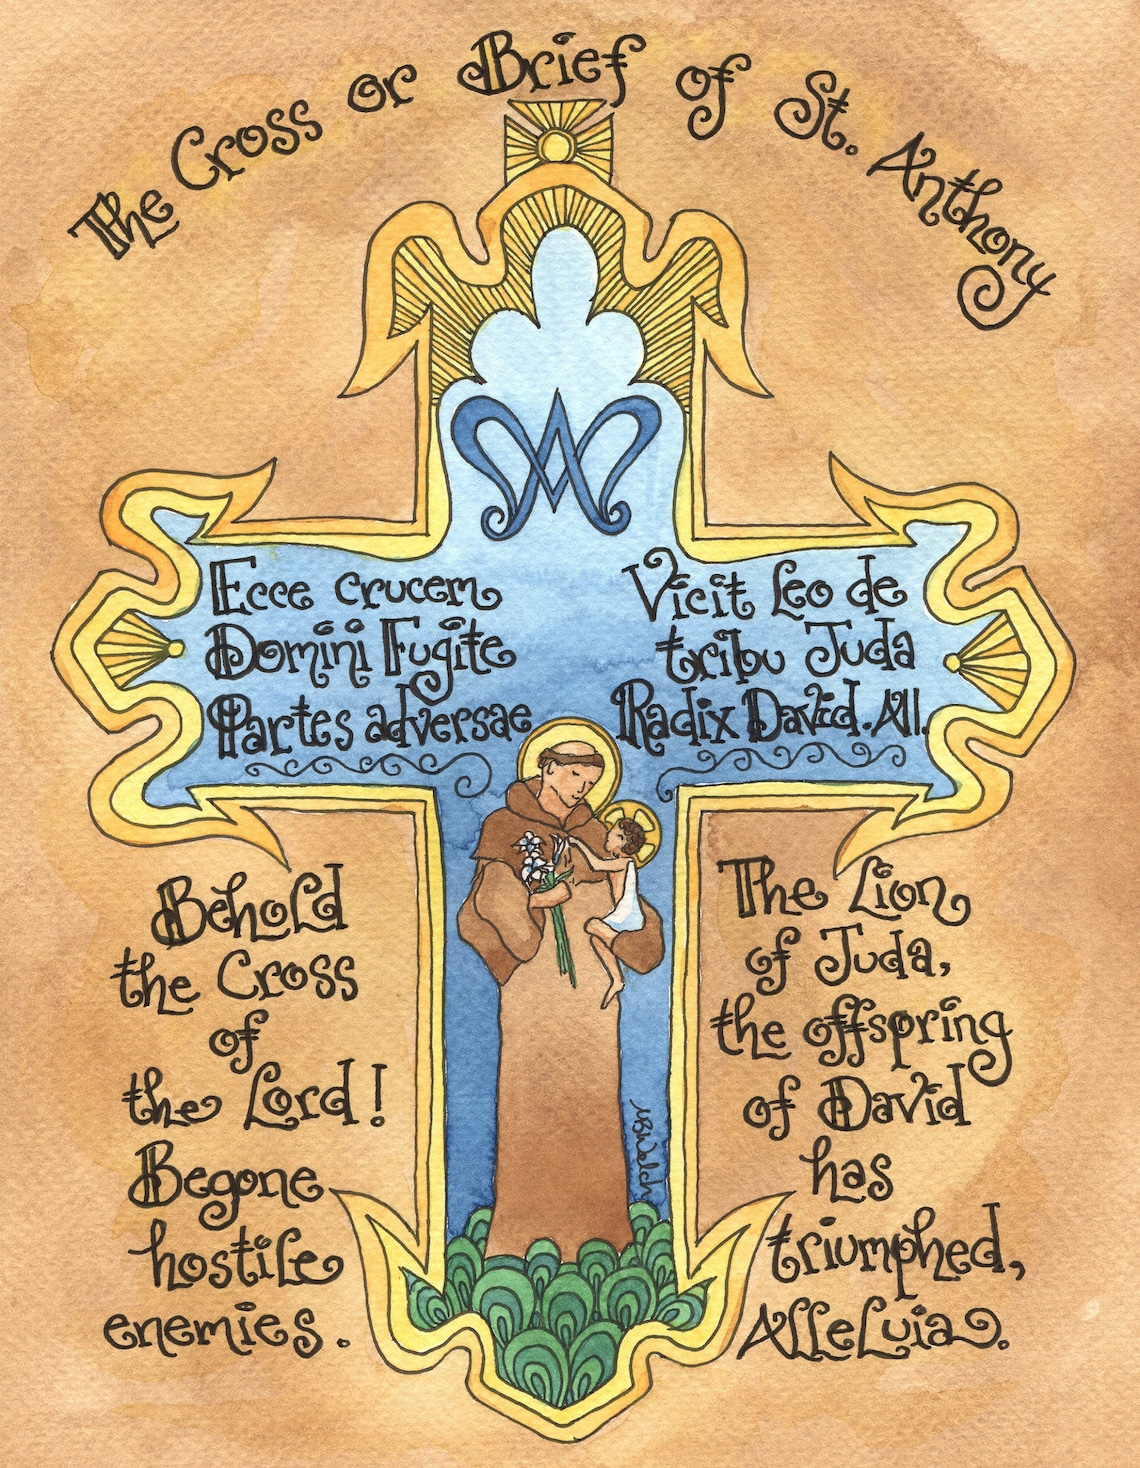 The Cross or Brief of St. Anthony
MA
Ecce crucem
Domini Fugite
Partes adversae
Vicit Leo de
tribu Juda
Radix David. All.
Behold
the Cross
of
the Lord!
Begone
hostile
enemies.
The Lion
of Juda,
the offspring
of David
has
triumphed,
Alleluia.
MBWelch